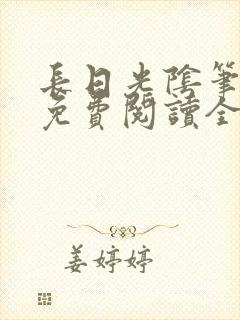 長日光陰筆
免費閱讀全
姜婷婷